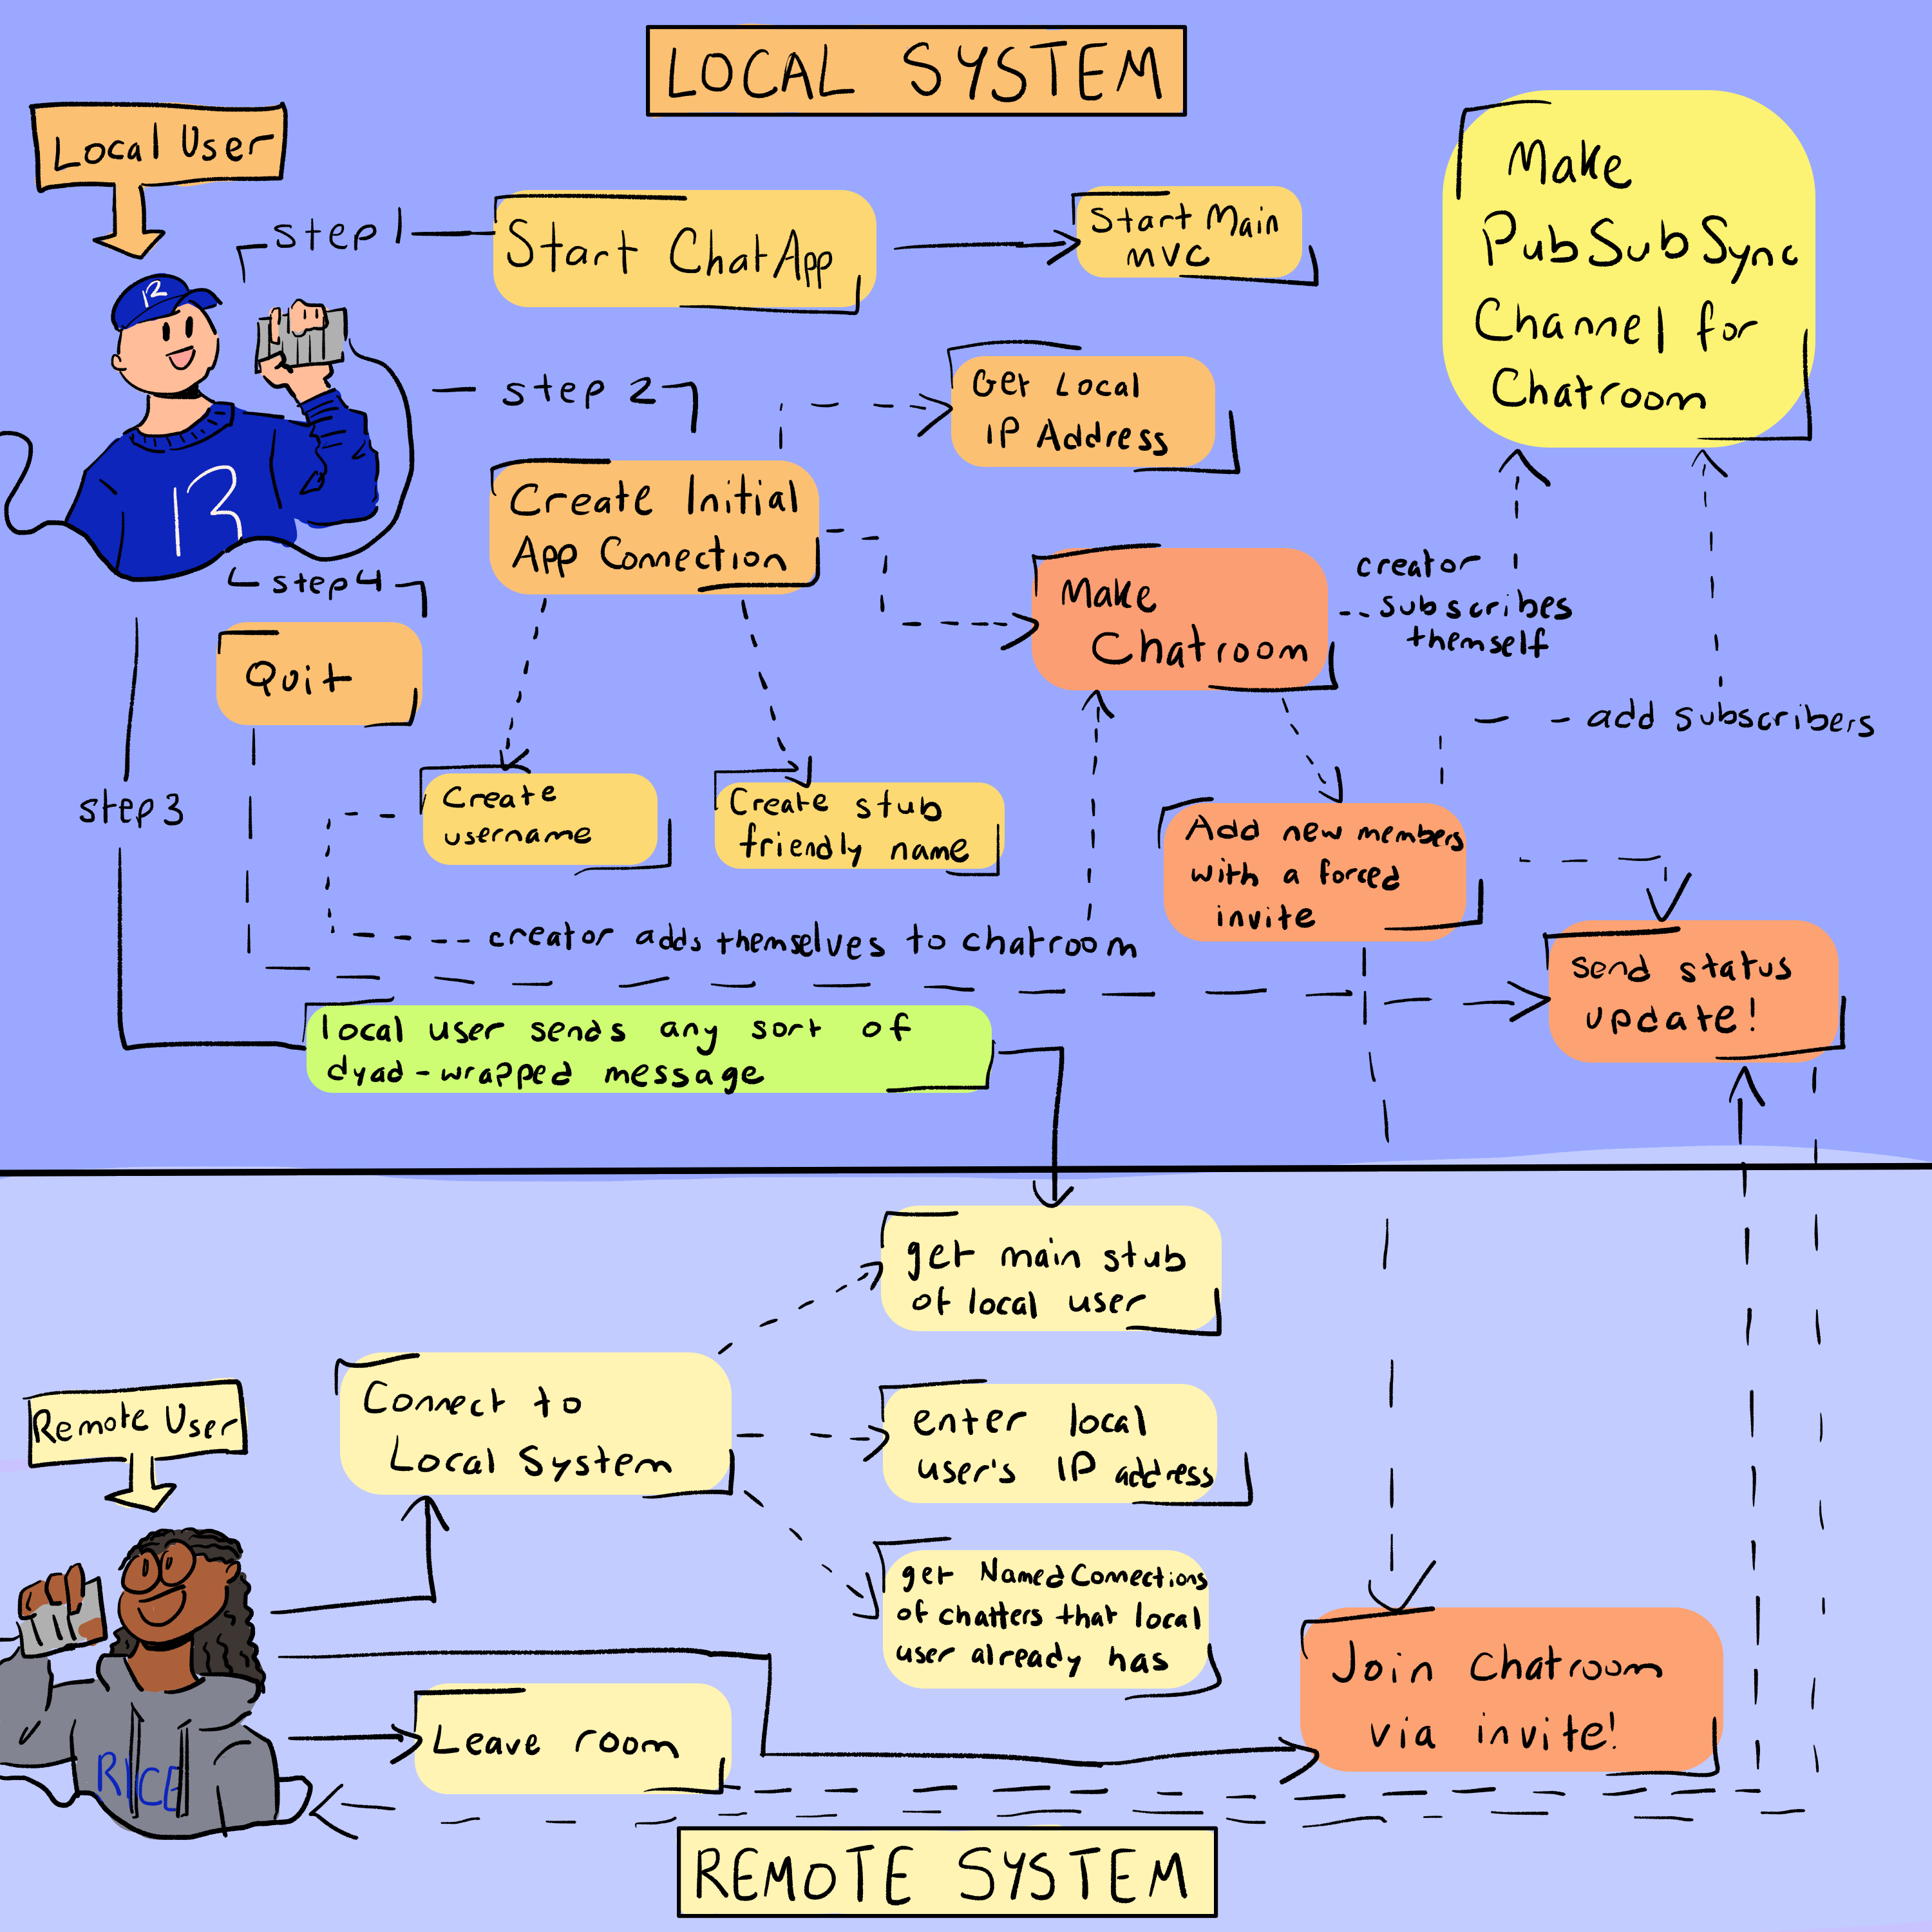 LOCAL SYSTEM
Local User
step 1
Start ChatApp
Start Main
MVC
Make
PubSubSync
Channel for
Chatroom
R
R
step 2
Get Local
IP Address
Create Initial
App Connection
Make
Chatroom
creator
subscribes
themself
step 4
Quit
add subscribers
step 3
Create
username
Create stub
friendly name
Add new members
with a forced
invite
creator adds themselves to chatroom
send status
update!
local user sends any sort of
dyad-wrapped message
get main stub
of local user
Connect to
Local System
Remote User
enter local
user's IP address
get NamedConnections
of chatters that local
user already has
Join chatroom
via invite!
Leave room
RICE
REMOTE SYSTEM